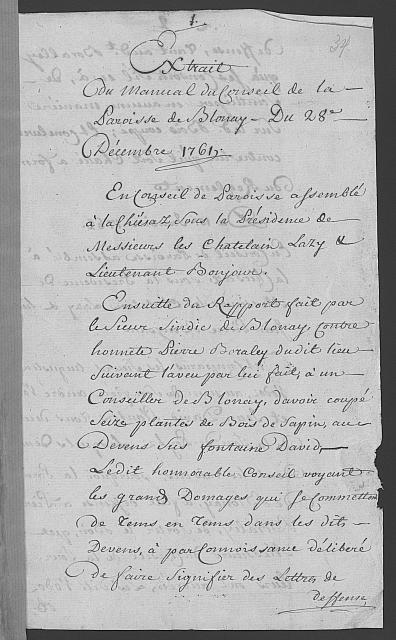 1.
34
Extrait
du Manual du Conseil de la
Paroisse de Blonay - Du 28e
Décembre 1761.
En Conseil de Paroisse assemblé
à la Chiésaz, sous la Présidence de
Messieurs les Chatelain Lary &
Lieutenant Bonjour.
Ensuitte du Rapport fait par
le Sieur Sindic de Blonay, contre
honnête Pierre Boraley dudit lieu
Suivant l'aveu par lui fait, à un
Conseiller de Blonay, d'avoir coupé
Seize plantes de Bois de Sapin, au
Devens Sus fontaine David,
Ledit honnorable Conseil voyant
les grands Domages qui se Commetten
de Tems en Tems dans les dits
Devens, à par Connoissance déliberé
de faire Signifier des Lettres de
deffense